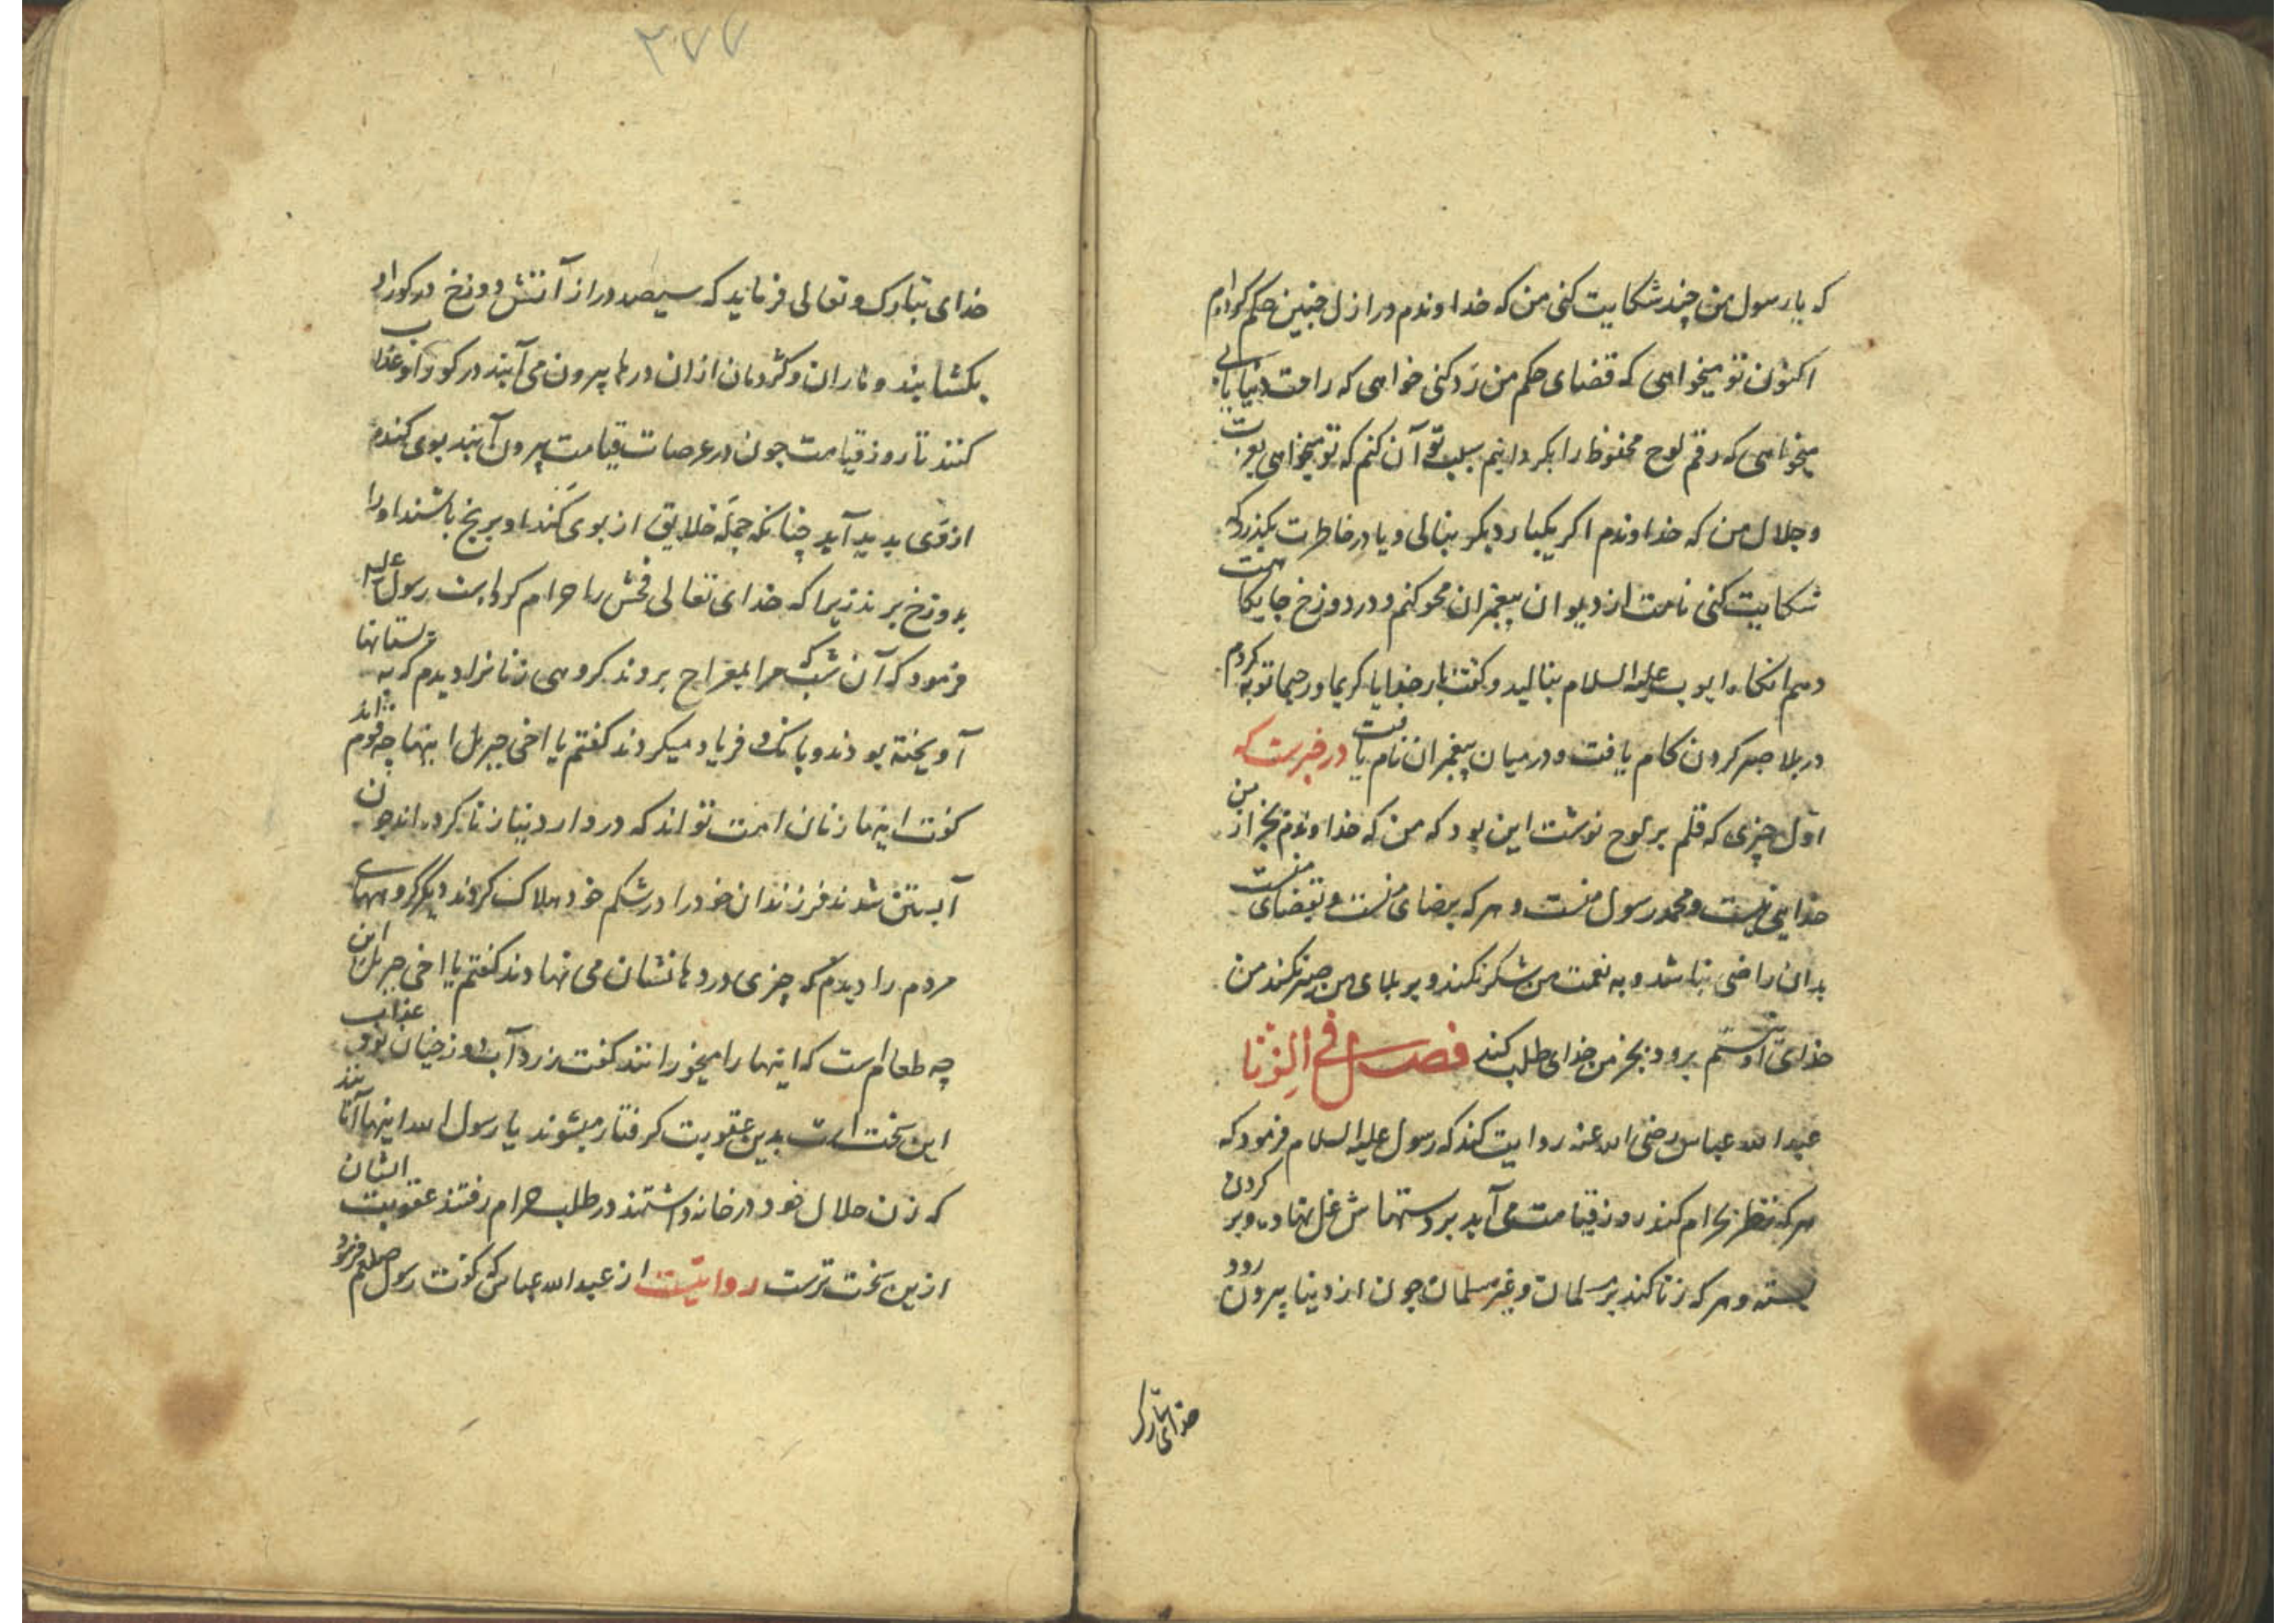 که یا رسول من چند شکایت کنی من که خداوندم در ازل چنین حکم کرده‌ام
اکنون تو میخواهی که قضای حکم من رد کنی خواهی که راحت دنیا یابی
میخواهی که رقم لوح محفوظ را بگردانیم سبب تو آن کنم که تو میخواهی بعزت
و جلال من که خداوندم اگر یکبار دیگر بنالی و یا در خاطرت بگذرد که
شکایت کنی نامت از دیوان پیغمبران محو کنم و در دوزخ جایگاهت
دهم آنگاه ایوب علیه السلام بنالید و گفت بار خدایا کریما و رحیما توبه کردم
در بلا صبر کردن کام یافت و در میان پیغمبران نام یافت در خبرست که
اول چیزی که قلم بر لوح نوشت این بود که من که خداوندم بجز از من
خدایی نیست و محمد رسول منست و هر که برضای منست و بقضای منست
بدان راضی نباشد و به نعمت من شکر نکند و بر بلای من صبر نکند من
خدای او نیستم برود بجز من خدای طلب کند فصل فی الزنا
عبدالله عباس رضی الله عنه روایت کند که رسول علیه السلام فرمود که
هر که نظر بحرام کند روز قیامت می‌آید بر دستهاش غل نهاده و بر گردن
بسته و هر که زنا کند بر مسلمان و غیر مسلمان چون از دنیا بیرون رود
خدای تبارک
۳۷۷
خدای تبارک و تعالی فرماید که سیصد در از آتش دوزخ در گور او
بکشایند و ماران و کژدمان ازان درها بیرون می‌آیند در گور او عذاب
کنند تا روز قیامت چون در عرصات قیامت بیرون آیند بوی گندم
از وی پدید آید چنانکه جمله خلایق از بوی گند او برنج باشند او را
بدوزخ برند زیرا که خدای تعالی فحش را حرام کرده است رسول علیه
فرمود که آن شب که مرا بمعراج بردند گروهی زنانرا دیدم که به پستانها
آویخته بودند و بانگ و فریاد میکردند گفتم یا اخی جبرئل اینها چه قوم‌اند
گفت اینها زنان امت تو اند که در دار دنیا زنا کرده‌اند چون
آبستن شدند فرزندان خود را در شکم خود هلاک کردند دیگر گروههای
مردم را دیدم که چیزی در دهانشان می نهادند گفتم یا اخی جبرئل این
چه طعام است که اینها را میخورانند گفت زرد آب دوزخیان بود عذاب
این سخت است بدین عقوبت گرفتار میشوند یا رسول الله اینها آنانند
که زن حلال خود در خانه داشتند در طلب حرام رفتند عقوبت ایشان
ازین سخت ترست روایتست از عبدالله عباس که گفت رسول صلعم فرمود